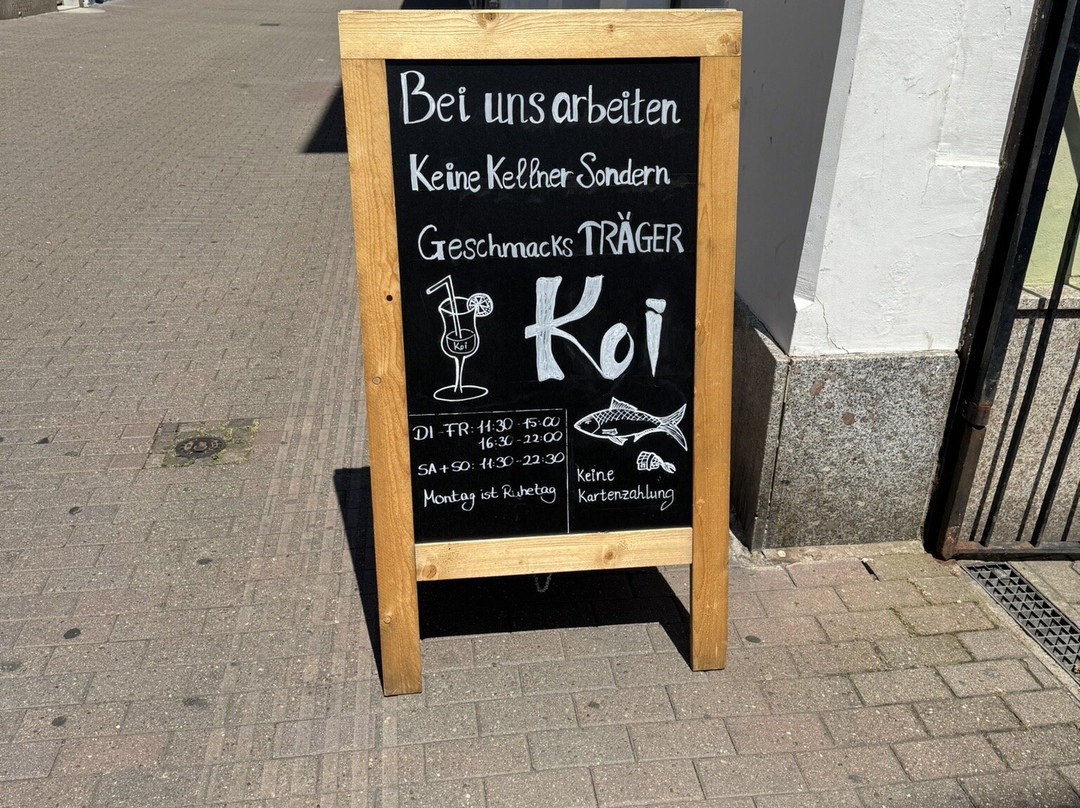 Bei uns arbeiten
Keine Kellner Sondern
Geschmacks TRÄGER
Koi
Koi
DI - FR: 11:30 - 15:00
16:30 - 22:00
SA + SO: 11:30 - 22:30
Montag ist Ruhetag
Keine
Kartenzahlung